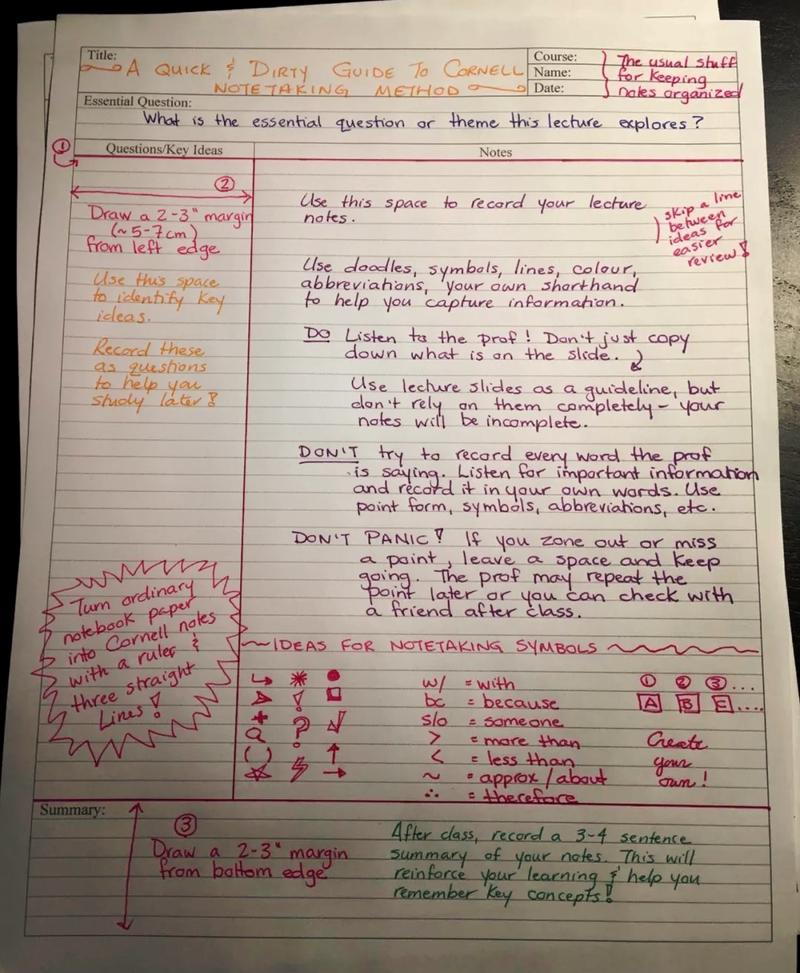 Title:
A QUICK & DIRTY GUIDE TO CORNELL
NOTETAKING METHOD
Course:
Name:
Date:
The usual stuff
for keeping
notes organized
Essential Question:
What is the essential question or theme this lecture explores?
①
Questions/Key Ideas
Notes
②
Draw a 2-3" margin
(~5-7cm)
from left edge
Use this space
to identify key
ideas.
Record these
as questions
to help you
study later!
Turn ordinary
notebook paper
into Cornell notes
with a ruler &
three straight
Lines!
Use this space to record your lecture
notes.
skip a line
between
ideas for
easier
review!
Use doodles, symbols, lines, colour,
abbreviations, your own shorthand
to help you capture information.
DO Listen to the prof! Don't just copy
down what is on the slide.
Use lecture slides as a guideline, but
don't rely on them completely - your
notes will be incomplete.
DON'T try to record every word the prof
is saying. Listen for important information
and record it in your own words. Use
point form, symbols, abbreviations, etc.
DON'T PANIC! If you zone out or miss
a point, leave a space and keep
going. The prof may repeat the
point later or you can check with
a friend after class.
IDEAS FOR NOTETAKING SYMBOLS
↳ ✳ ●
! □
+ ? ✓
( ) ↑
☆ ⚡ →
w/ = with
bc = because
s/o = someone
> = more than
< = less than
~ = approx/about
∴ = therefore
① ② ③...
A B E....
Create
your
own!
Summary:
③
Draw a 2-3" margin
from bottom edge
After class, record a 3-4 sentence
summary of your notes. This will
reinforce your learning & help you
remember key concepts!